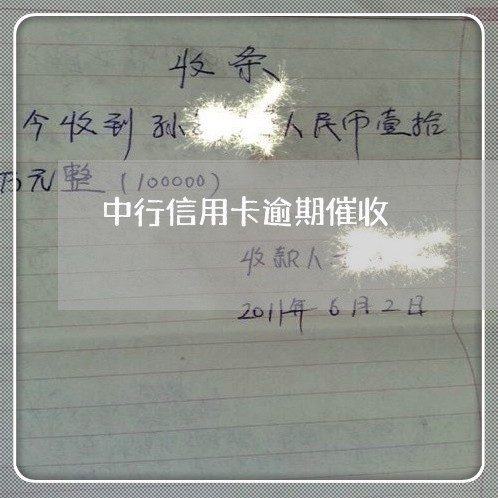 收条
今收到孙 人民币壹拾
万元整(100000)
中行信用卡逾期催收
收款人
2011年6月2日